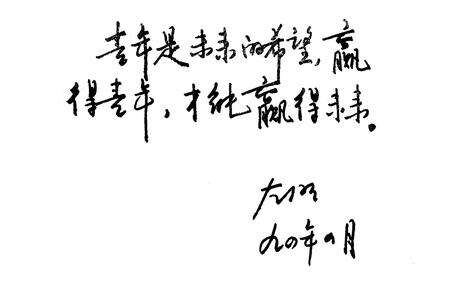 青年是未来的希望,赢
得青年,才能赢得未来。
九四年四月